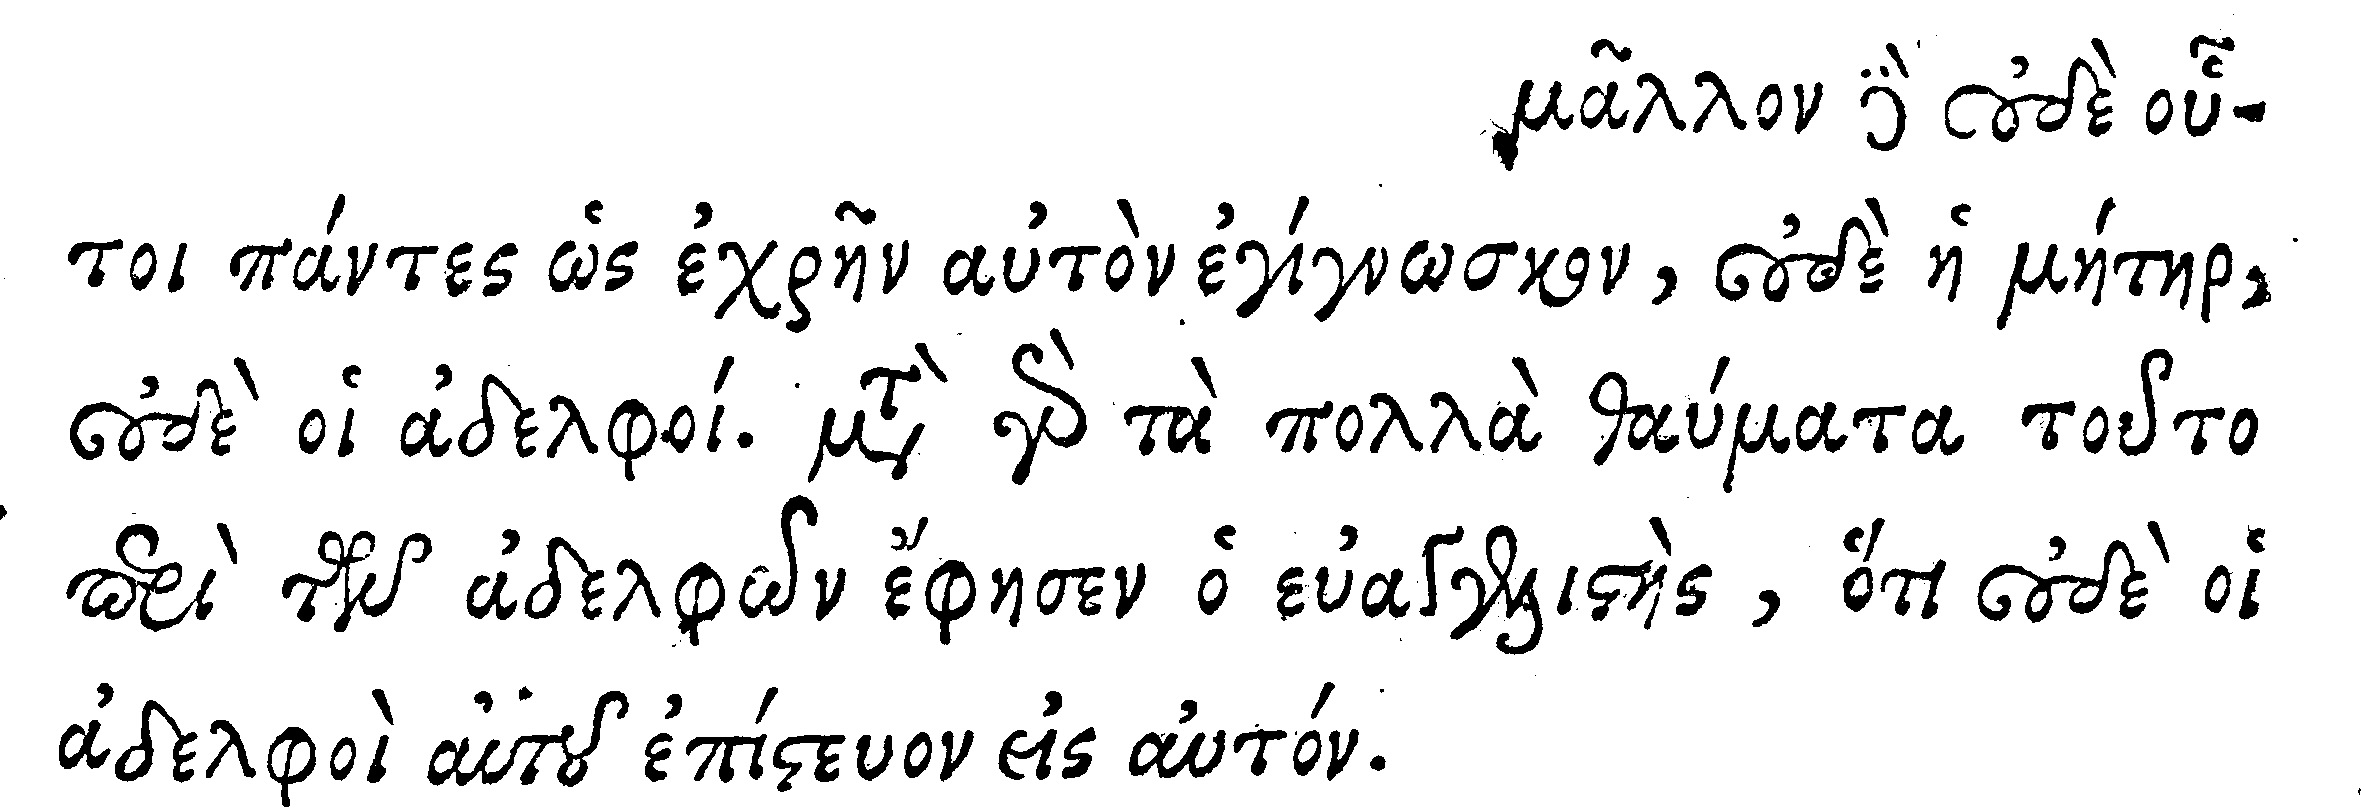 μᾶλλον δὲ οὐδὲ οὗ-
τοι πάντες ὡς ἐχρῆν αὐτὸν ἐγίγνωσκον, οὐδὲ ἡ μήτηρ,
οὐδὲ οἱ ἀδελφοί. μετὰ γὰρ τὰ πολλὰ θαύματα τοῦτο
περὶ τῶν ἀδελφῶν ἔφησεν ὁ εὐαγγελιστὴς, ὅτι οὐδὲ οἱ
ἀδελφοὶ αὐτοῦ ἐπίστευον εἰς αὐτόν.